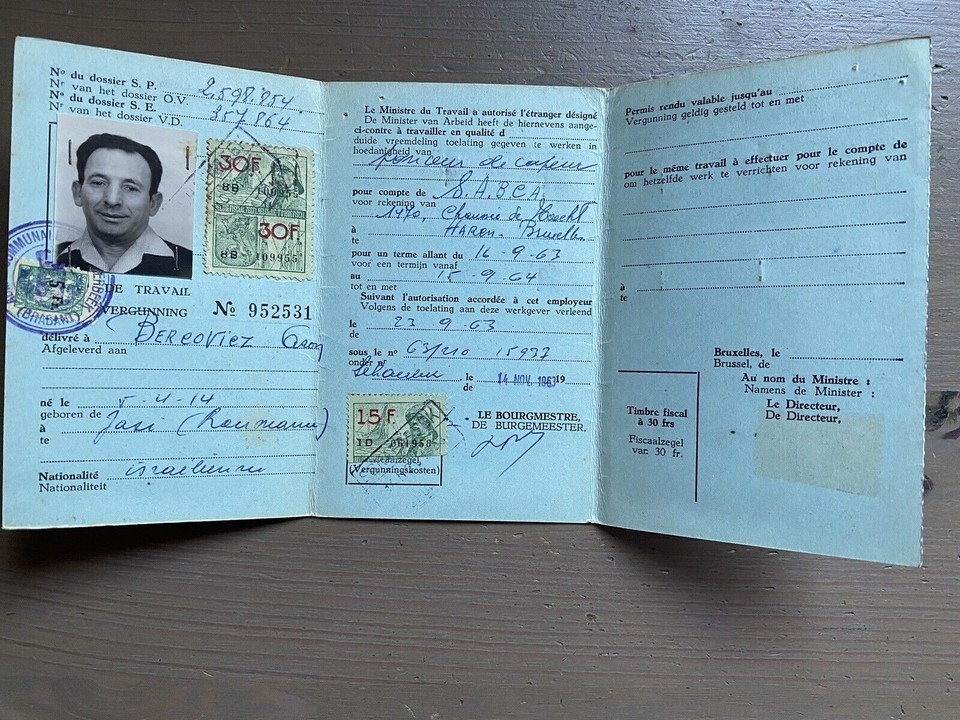 Nº du dossier S. P. 2.598.854
Nr van het dossier O.V.
Nº du dossier S. E. 357.864
Nr van het dossier V.D.
30F
88 109955
30F
88 109955
DE TRAVAIL
VERGUNNING Nº 952531
(BRABANT)
5 Fr.
délivré à BERCOVICZ
Afgeleverd aan
né le 5-4-14
geboren de
à Jasi (Roumanie)
te
Nationalité israelienne
Nationaliteit
Le Ministre du Travail a autorisé l'étranger désigné
De Minister van Arbeid heeft de hiernevens aange-
ci-contre à travailler en qualité d
duide vreemdeling toelating gegeven te werken in
hoedanigheid van
pour compte de S.A.B.C.A.
voor rekening van
1470, Chaussée de Haecht
à HAREN-Bruxelles
te
pour un terme allant du 16-9-63
voor een termijn vanaf
au 15-9-64
tot en met
Suivant l'autorisation accordée à cet employeur
Volgens de toelating aan deze werkgever verleend
le 23 9-63
de
sous le nº 63/210 15937
onder nr
, le 14 NOV. 1963 19
de
15 F
10 061958
LE BOURGMESTRE,
DE BURGEMEESTER,
(Vergunningskosten)
Permis rendu valable jusqu'au
Vergunning geldig gesteld tot en met
pour le même travail à effectuer pour le compte de
om hetzelfde werk te verrichten voor rekening van
à
te
Bruxelles, le
Brussel, de
Au nom du Ministre :
Namens de Minister :
Le Directeur,
De Directeur,
Timbre fiscal
à 30 frs
Fiscaalzegel
van 30 fr.